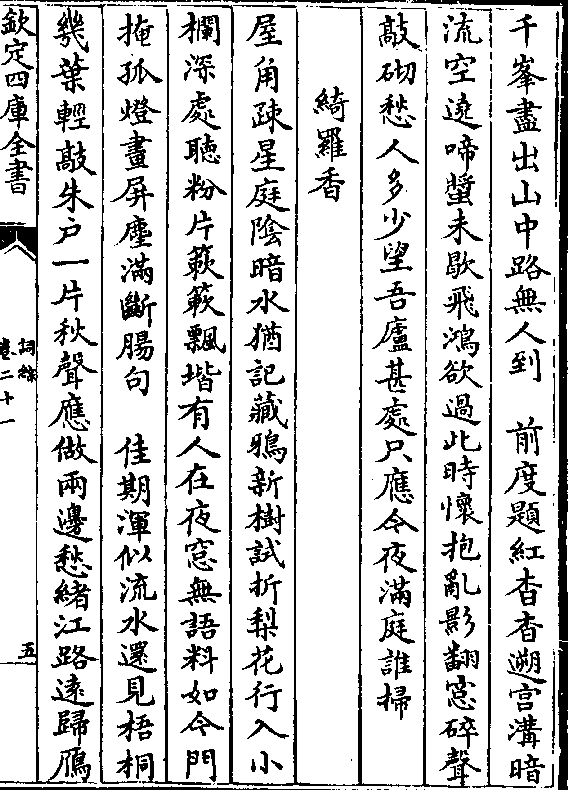 千峯盡出山中路無人到　前度題紅杳杳遡宫溝暗
流空遶啼螿未歇飛鴻欲過此時懷抱亂影翻窓碎聲
敲砌愁人多少望吾廬甚處只應今夜滿庭誰掃
綺羅香
屋角疎星庭陰暗水猶記藏鴉新樹試折梨花行入小
欄深處聽粉片簌簌飄堦有人在夜窓無語料如今門
掩孤燈畫屏塵滿斷腸句　佳期渾似流水還見梧桐
幾葉輕敲朱户一片秋聲應做兩邊愁緒江路逺歸鴈
欽定四庫全書
詞綜
卷二十一
五